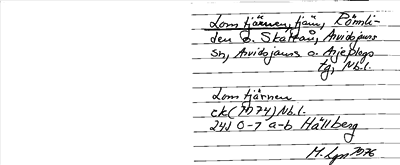 Lomtjärnen, tjärn, Römli-
den o. Skätran, Arvidsjaurs
sn, Arvidsjaurs o. Arjeplogs
tg, Nb.l.
Lomtjärnen
ek (1974) Nb.l.
24J 0-7 a-b Hällberg
M. Lgn 1976